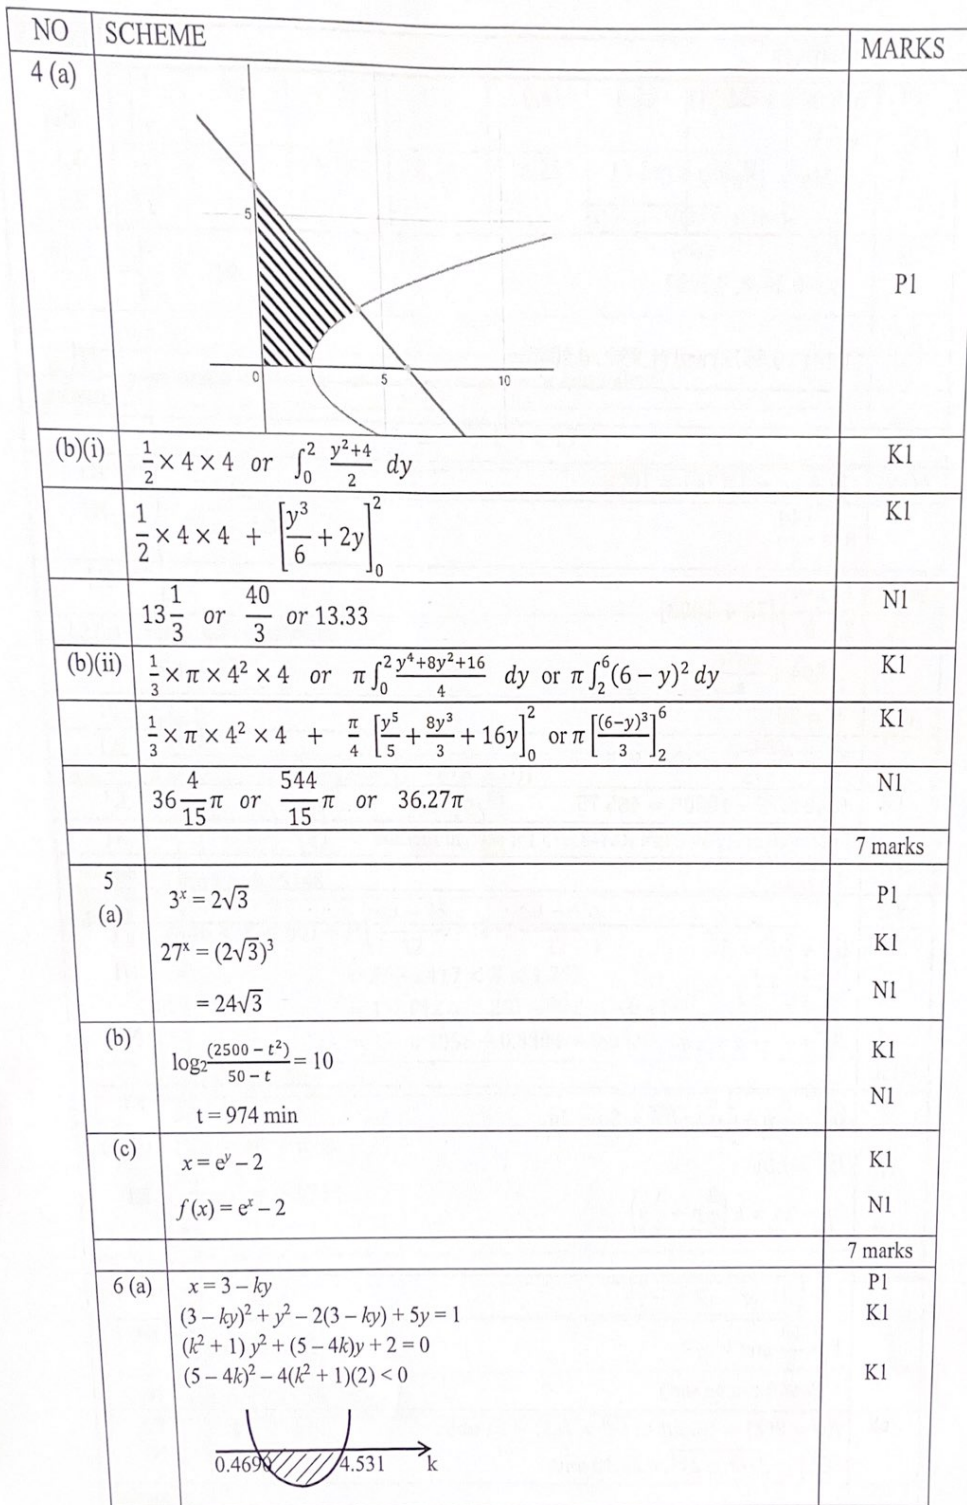 NO SCHEME MARKS
4 (a)
5
0 5 10
P1
(b)(i) 1/2 × 4 × 4 or ∫₀² (y²+4)/2 dy K1
1/2 × 4 × 4 + [y³/6 + 2y]₀² K1
13 1/3 or 40/3 or 13.33 N1
(b)(ii) 1/3 × π × 4² × 4 or π∫₀² (y⁴+8y²+16)/4 dy or π∫₂⁶(6 − y)² dy K1
1/3 × π × 4² × 4 + π/4 [y⁵/5 + 8y³/3 + 16y]₀² or π[(6−y)³/3]₂⁶ K1
36 4/15 π or 544/15 π or 36.27π N1
7 marks
5
(a) 3ˣ = 2√3 P1
27ˣ = (2√3)³ K1
= 24√3 N1
(b) log₂ (2500 − t²)/(50 − t) = 10 K1
t = 974 min N1
(c) x = eʸ − 2 K1
f (x) = eˣ − 2 N1
7 marks
6 (a) x = 3 − ky P1
(3 − ky)² + y² − 2(3 − ky) + 5y = 1 K1
(k² + 1) y² + (5 − 4k)y + 2 = 0
(5 − 4k)² − 4(k² + 1)(2) < 0 K1
0.4690 4.531 k